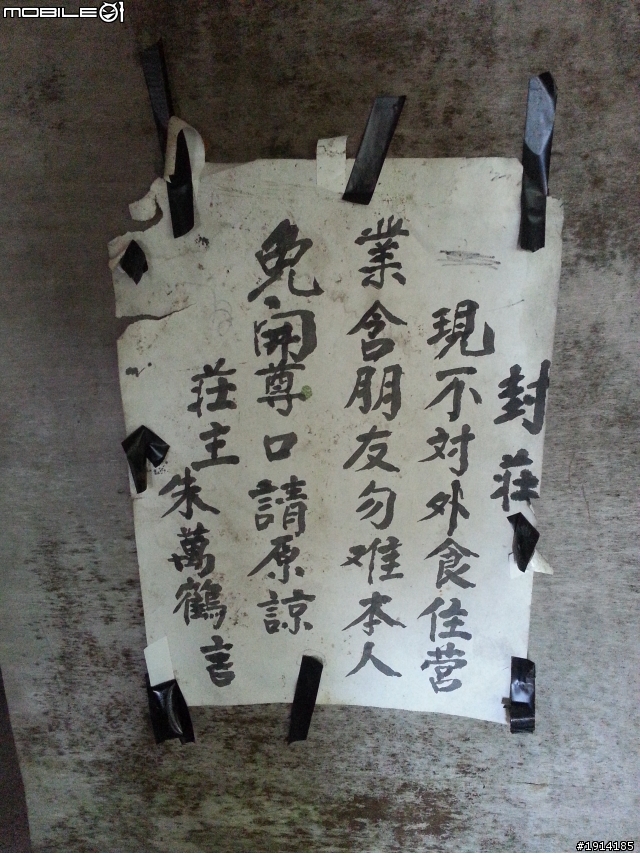 封莊
現不対外食住营
業含朋友勿难本人
免開尊口請原諒
莊主朱萬鶴言
MOBILE01
#1914185